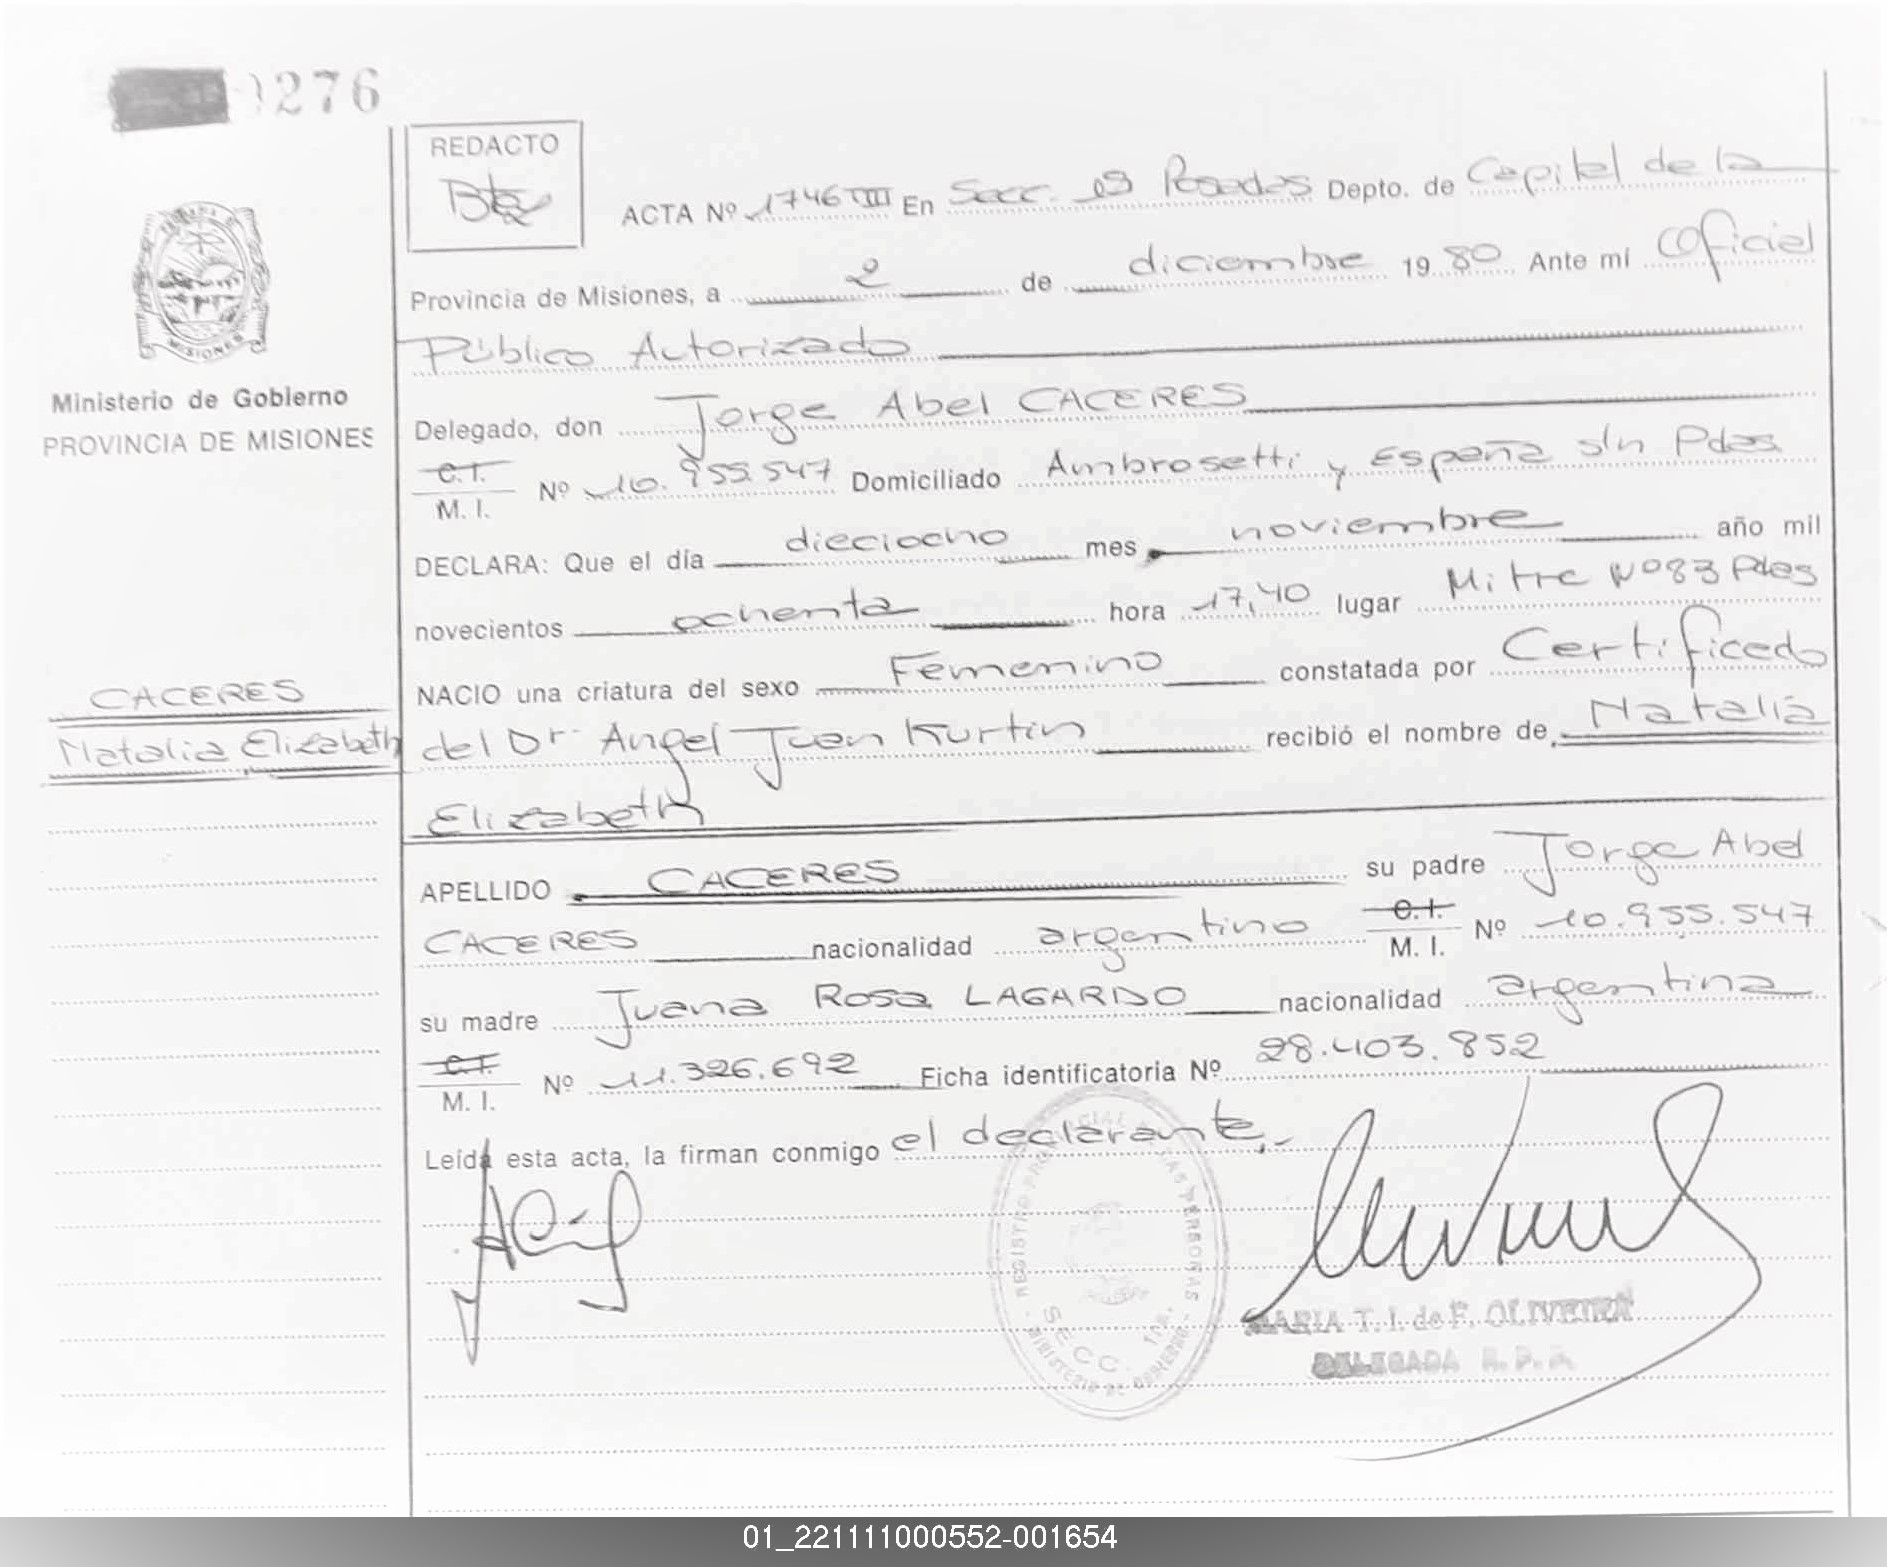 276
REDACTO
ACTA Nº 1746 TIII En Secc. 1a Posadas Depto. de Capital de la
Provincia de Misiones, a 2 de diciembre 1980 Ante mí Oficial
Público Autorizado
MISIONES
Ministerio de Gobierno
PROVINCIA DE MISIONES
Delegado, don Jorge Abel CACERES
C.I.
M. I. Nº 10.955.547 Domiciliado Ambrosetti y España s/n Pdas
DECLARA: Que el día dieciocho mes noviembre año mil
novecientos ochenta hora 17,40 lugar Mitre Nº 83 Pdas
NACIO una criatura del sexo Femenino constatada por Certificado
CACERES
Natalia Elizabeth
del Dr. Angel Juan Kurtin recibió el nombre de Natalia
Elizabeth
APELLIDO CACERES su padre Jorge Abel
CACERES nacionalidad argentino C.I. M. I. Nº 10.955.547
su madre Juana Rosa LAGARDO nacionalidad argentina
C.I.
M. I. Nº 11.326.692 Ficha identificatoria Nº 28.403.852
Leída esta acta, la firman conmigo el declarante,-
REGISTRO PERSONAS
SECC. 1ra.
MINISTERIO DE GOBIERNO
MARIA T. I. de F. OLIVEIRA
DELEGADA R. P. P.
01_221111000552-001654